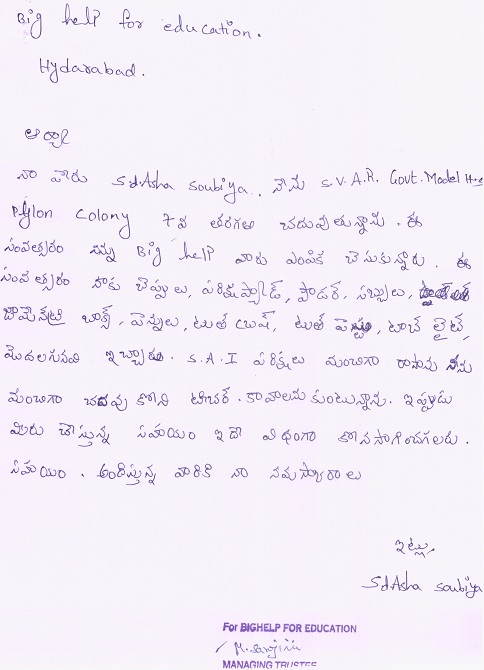 Big help for education.
Hydarabad.
ఆర్యా
నా పారు Sd.Asha Soubiya. నెను S.V.A.R. Govt. Model H
Pylon Colony 7వ తరగతి చదువుతున్నాను. ఈ
సంవత్సరం నన్ను Big help వారు ఎంపిక చెసుకున్నారు. ఈ
సంవత్సరం నాకు చెప్పులు, పరిక్షప్యాడ్, పౌడర్, సబ్బులు,
జామెన్ట్రి బాక్స్, పెన్నులు, టుత్ బ్రుష్, టుత్ పెస్టు, టార్చ్ లైట్,
మొదలగునవి ఇచ్చారు. S.A.I పరిక్షలు మంచిగా రాసాను నెను
మంచిగా చదవు కోని టీచర్. కావాలను కుంటున్నాను. ఇప్పుడు
మిరు చెస్తున్న సహయం ఇదె విధంగా కొనసాగించగలరు.
సహయం. అందిస్తున్న వారికి నా నమస్కారాలు
ఇట్లు,
Sd.Asha Soubiya
For BIGHELP FOR EDUCATION
MANAGING TRUSTEE